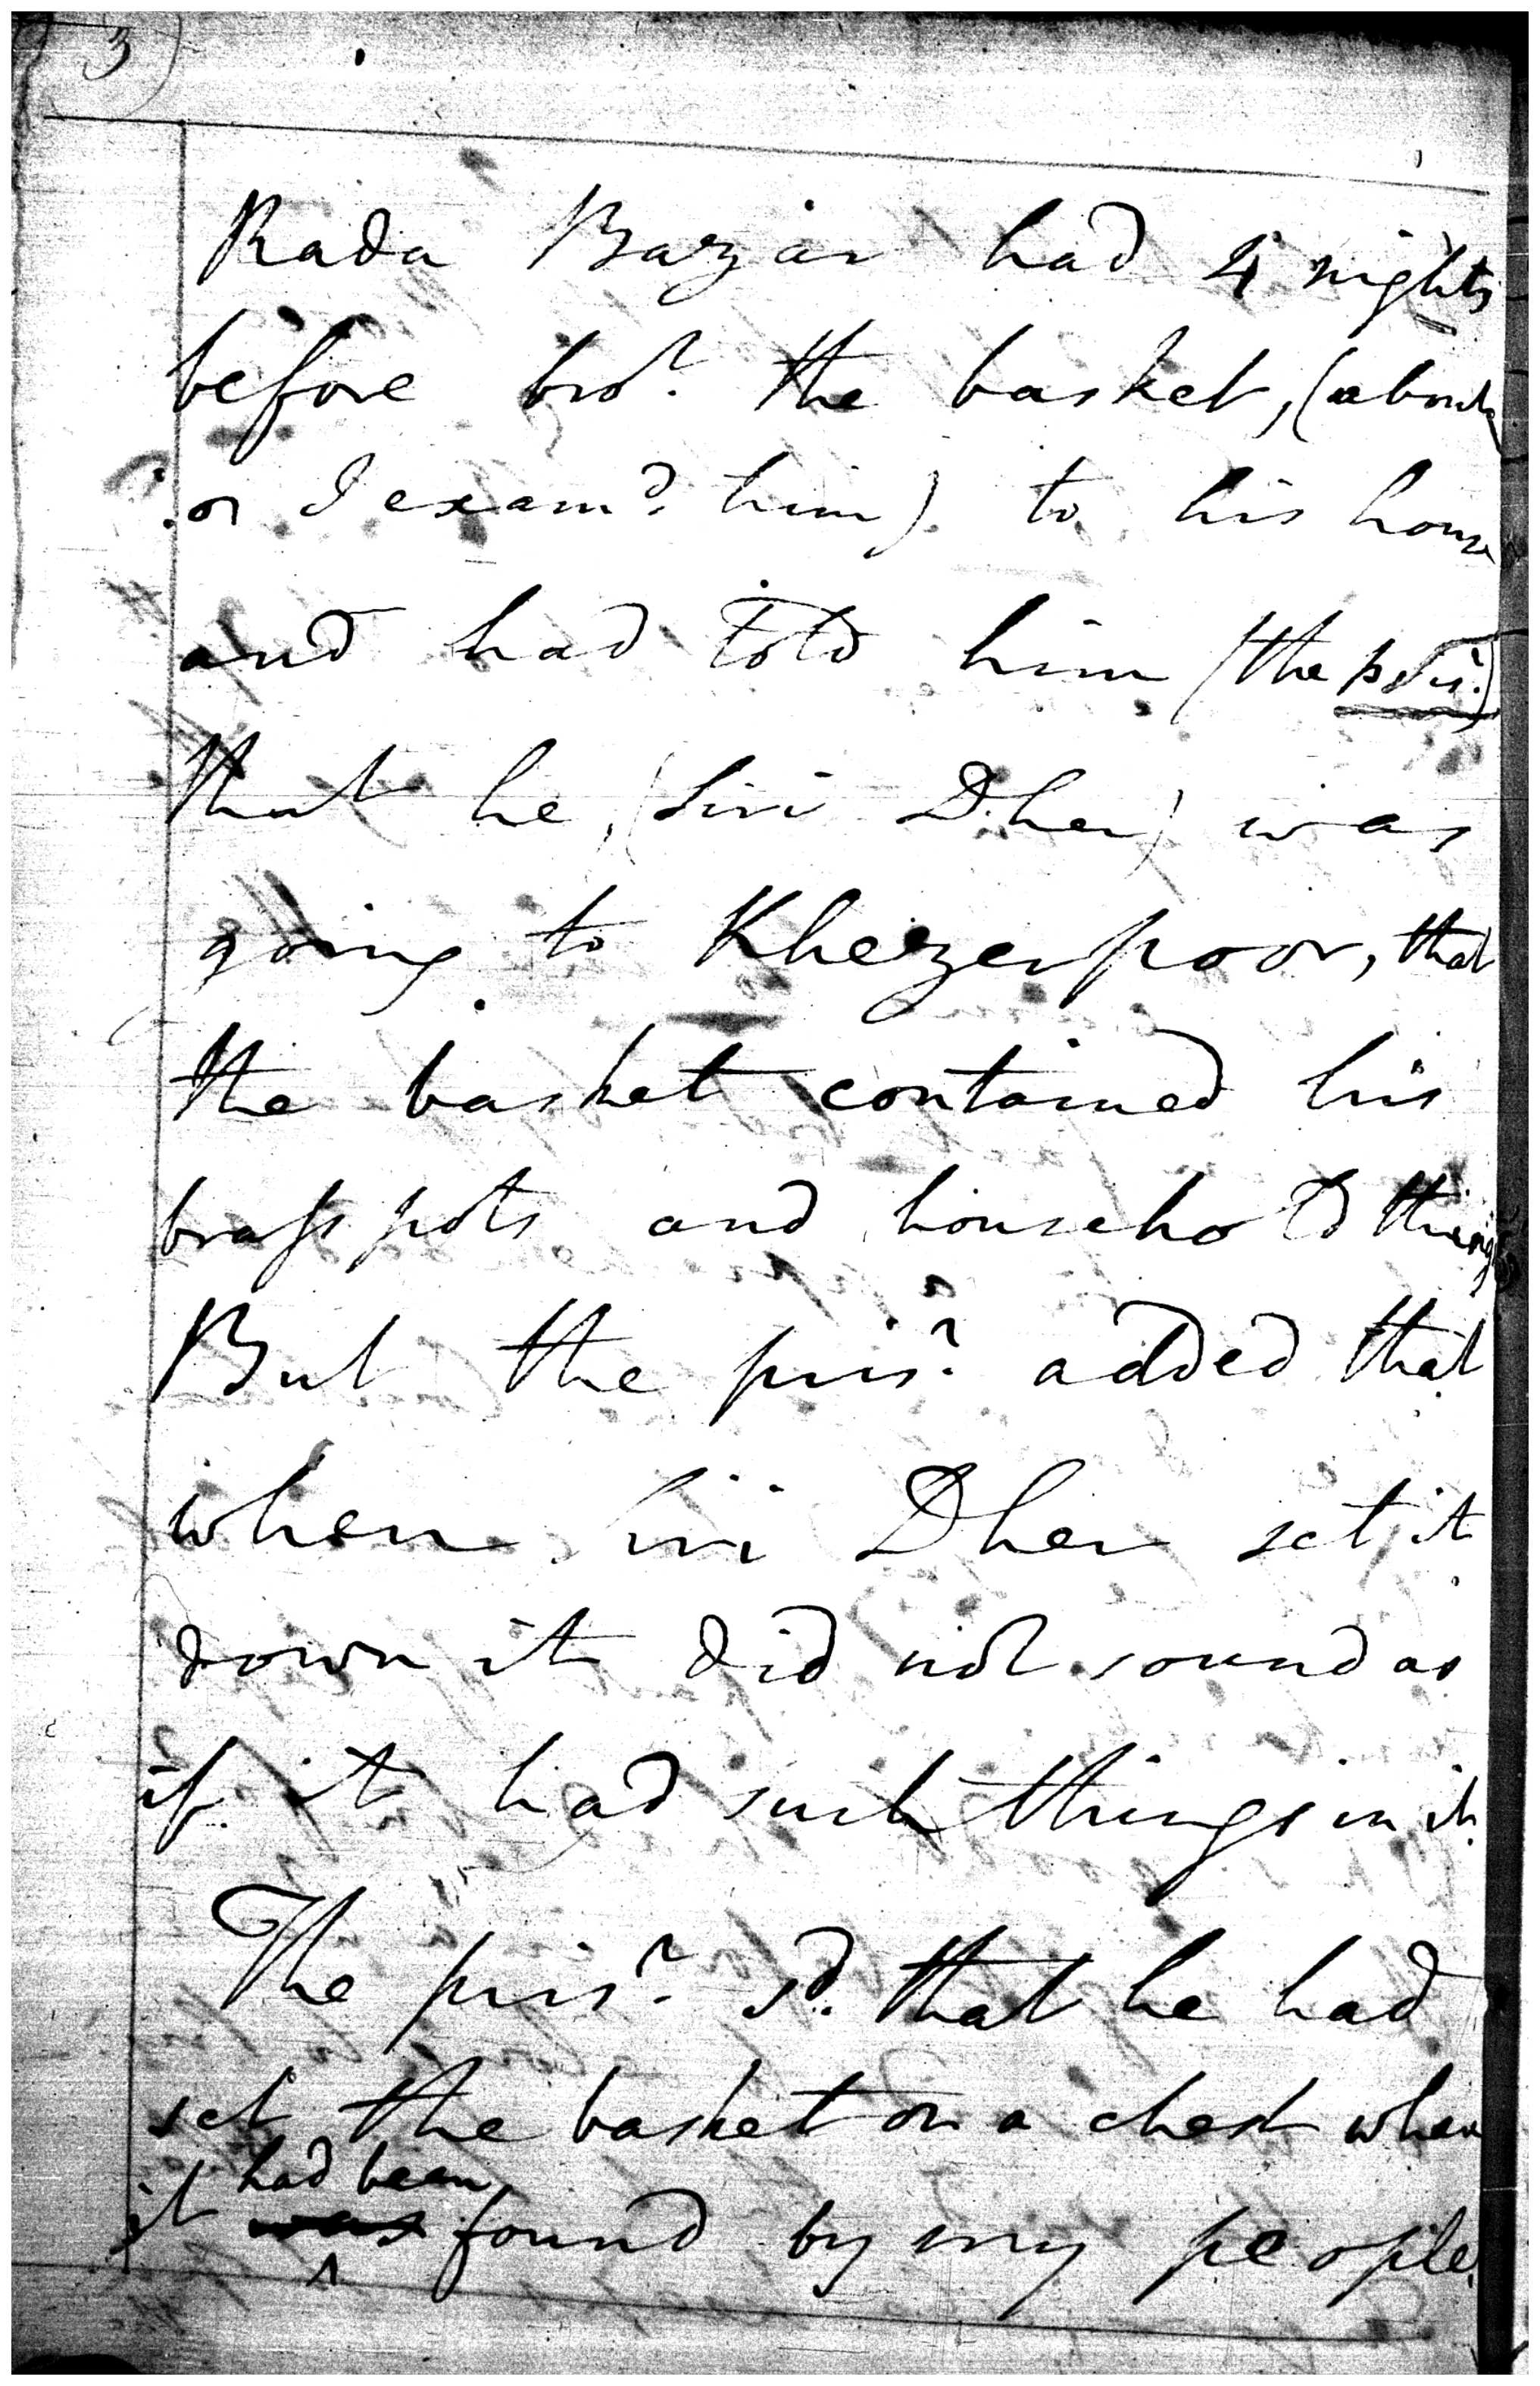 3)
Rada Bazar had 4 nights
before bro.t the basket, (about
or I exam.d him) to his house
and had told him (the pris.r)
that he, (Siri Dher) was
going to Khezerpoor, that
the basket contained his
brass pots and household things
But the pris.r added that
when Siri Dher set it
down it did not sound as
if it had such things in it.
The pris.r s.d that he had
set the basket on a chest when
it had been found by my people.